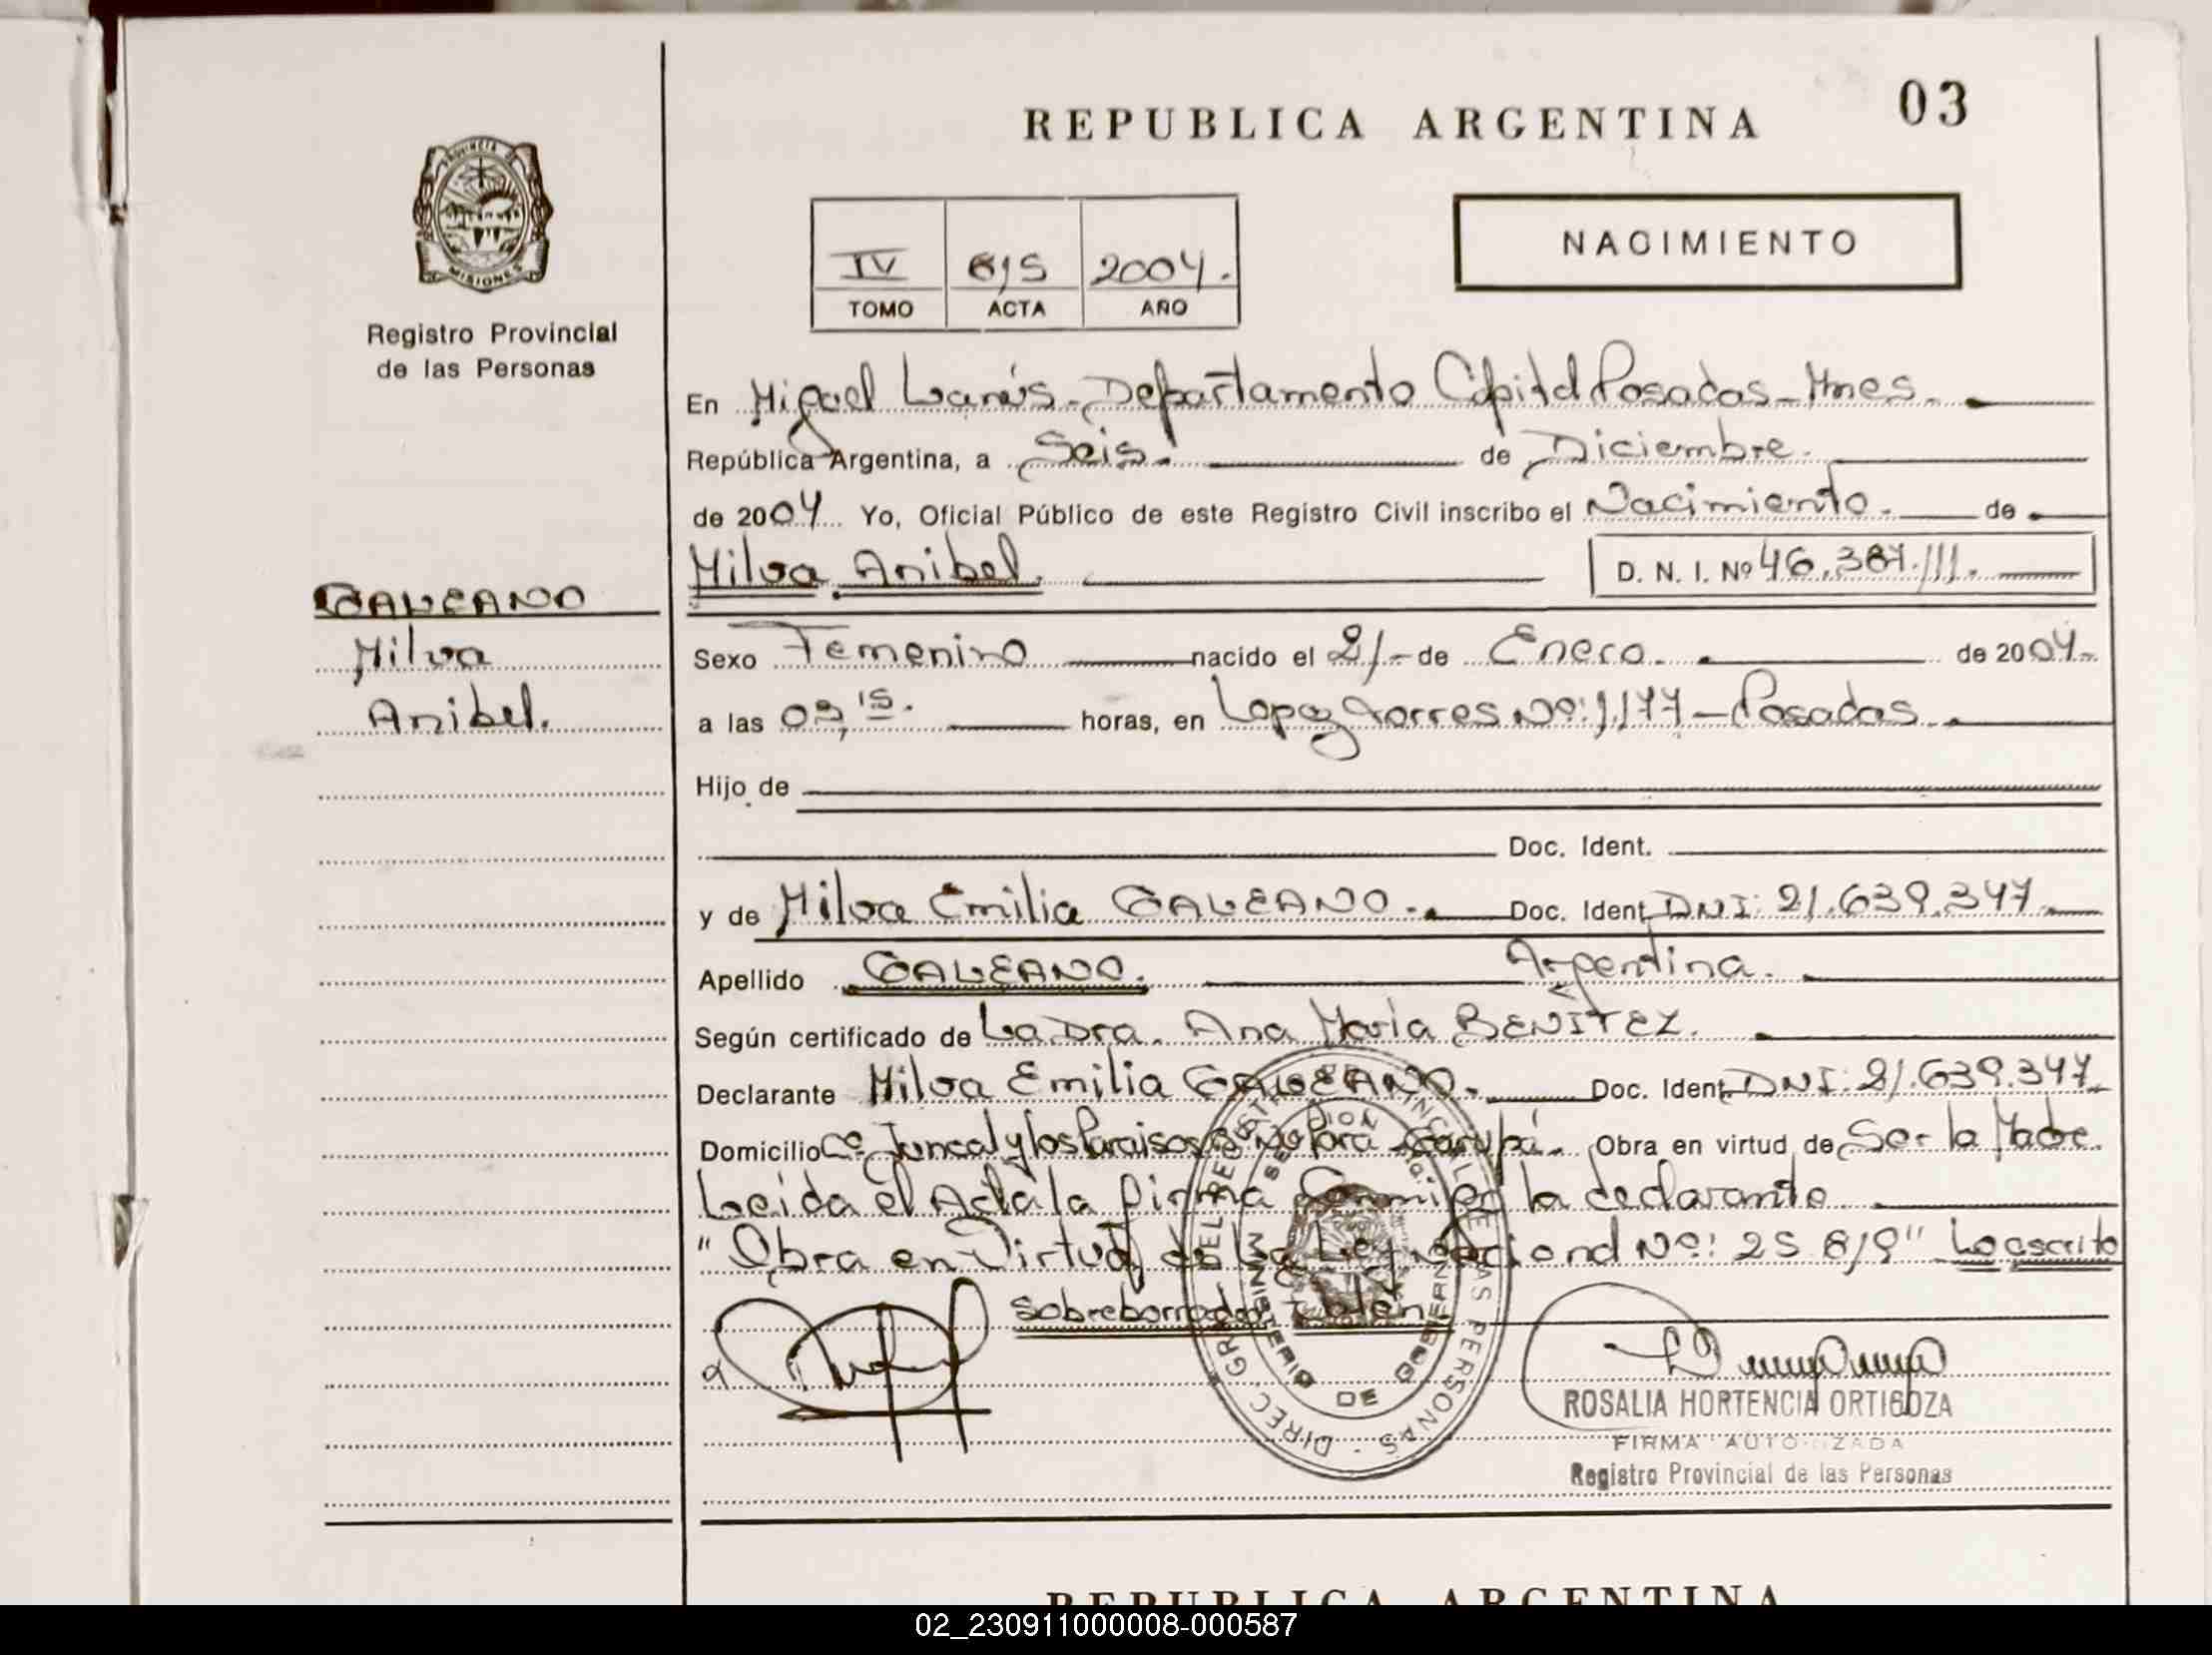 REPUBLICA ARGENTINA
03
PROVINCIA DE
MISIONES
Registro Provincial
de las Personas
IV 615 2004.
TOMO ACTA AÑO
NACIMIENTO
En Miguel Lanús - Departamento Capital Posadas - Mnes.
República Argentina, a Seis. de Diciembre.
de 2004 Yo, Oficial Público de este Registro Civil inscribo el Nacimiento. de
Milva Anibel. D. N. I. Nº 46.387.111.
GALEANO
Milva
Anibel.
Sexo Femenino nacido el 21 - de Enero. de 2004.
a las 09,15. horas, en Lopez Torres Nº: 1.177 - Posadas.
Hijo de
Doc. Ident.
y de Milva Emilia GALEANO. Doc. Ident. DNI: 21.639.347.
Apellido GALEANO. Argentina.
Según certificado de La Dra. Ana María BENITEZ.
Declarante Milva Emilia GALEANO. Doc. Ident. DNI: 21.639.347.
Domicilio Juncal y los Paraisos Garupá. Obra en virtud de Ser la Madre.
Leida el Acta la firma Conmigo la declarante.
"Obra en Virtud de la Ley Nacional Nº: 25 819" Lo escrito
sobreborrado
DIREC GRAL DEL REGISTRO PROVINCIAL DE LAS PERSONAS
MINISTERIO DE GOBIERNO
ROSALIA HORTENCIA ORTIGOZA
FIRMA AUTORIZADA
Registro Provincial de las Personas
REPUBLICA ARGENTINA
02_230911000008-000587